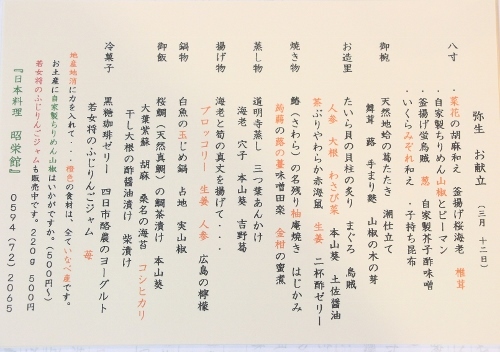 弥生 お献立 (三月 十二日)
八寸 ・菜花の胡麻和え 釜揚げ桜海老 椎茸
・自家製ちりめん山椒とピーマン
・釜揚げ蛍烏賊 葱 自家製芥子酢味噌
・いくらみぞれ和え ・子持ち昆布
御椀 天然地蛤の葛たたき 潮仕立て
舞茸 蕗 手まり麩 山椒の木の芽
お造里 たいら貝の貝柱の炙り まぐろ 烏賊
人参 大根 わさび菜 本山葵 土佐醤油
茶ぶりやわらか赤海鼠 生姜 二杯酢ゼリー
焼き物 鰆(さわら)の名残り柚庵焼き はじかみ
蒟蒻の蕗の薹味噌田楽 金柑の蜜煮
蒸し物 道明寺蒸し 三つ葉あんかけ
海老 穴子 本山葵 吉野葛
揚げ物 海老と筍の真丈を揚げて・・・
ブロッコリー 生姜 人参 広島の檸檬
鍋物 白魚の玉じめ鍋 占地 実山椒
御飯 桜鯛(天然真鯛)の鯛茶漬け 本山葵
大葉紫蘇 胡麻 桑名の海苔 コシヒカリ
干し大根の酢醤油漬け 柴漬け
冷菓子 黒糖珈琲ゼリー 四日市酪農のヨーグルト
若女将のふじりんごジャム 苺
地産地消に力を入れて・・・橙色の食材は、全ていなべ産です。
お土産に自家製ちりめん山椒はいかがですか。(500円～)
若女将のふじりんごジャムも販売中です。220g 500円
『日本料理 昭栄館』 0594(72)2065